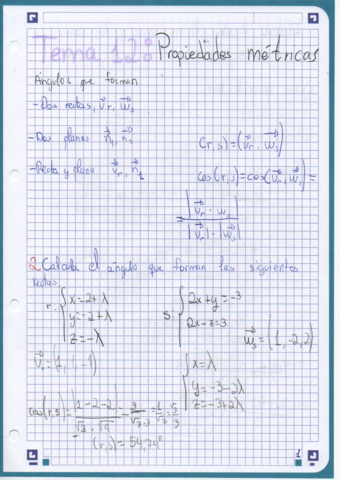 Tema 12: Propiedades métricas
Ángulos que forman
- Dos rectas, v⃗r, w⃗s
- Dos planos n⃗1, n⃗2
- Recta y plano v⃗r, n⃗1
(r,s)=(v⃗r, w⃗s)
cos(r,s)=cos(v⃗r, w⃗s)=
= |v⃗r · w⃗s| / |v⃗r| · |w⃗s|
2. Calcula el ángulo que forman las siguientes
rectas
r: { x=2+λ
y=-2+λ
z=-λ
s: { 2x+y=-3
2x-z=3
w⃗s=(1,-2,2)
v⃗r=(1,1,-1)
{ x=λ
y=-3-2λ
z=-3+2λ
cos(r,s)= |1-2-2| / √3 · √9 = 3/√3·3 = 1/√3 = √3/3
(r,s)=54,74º
1